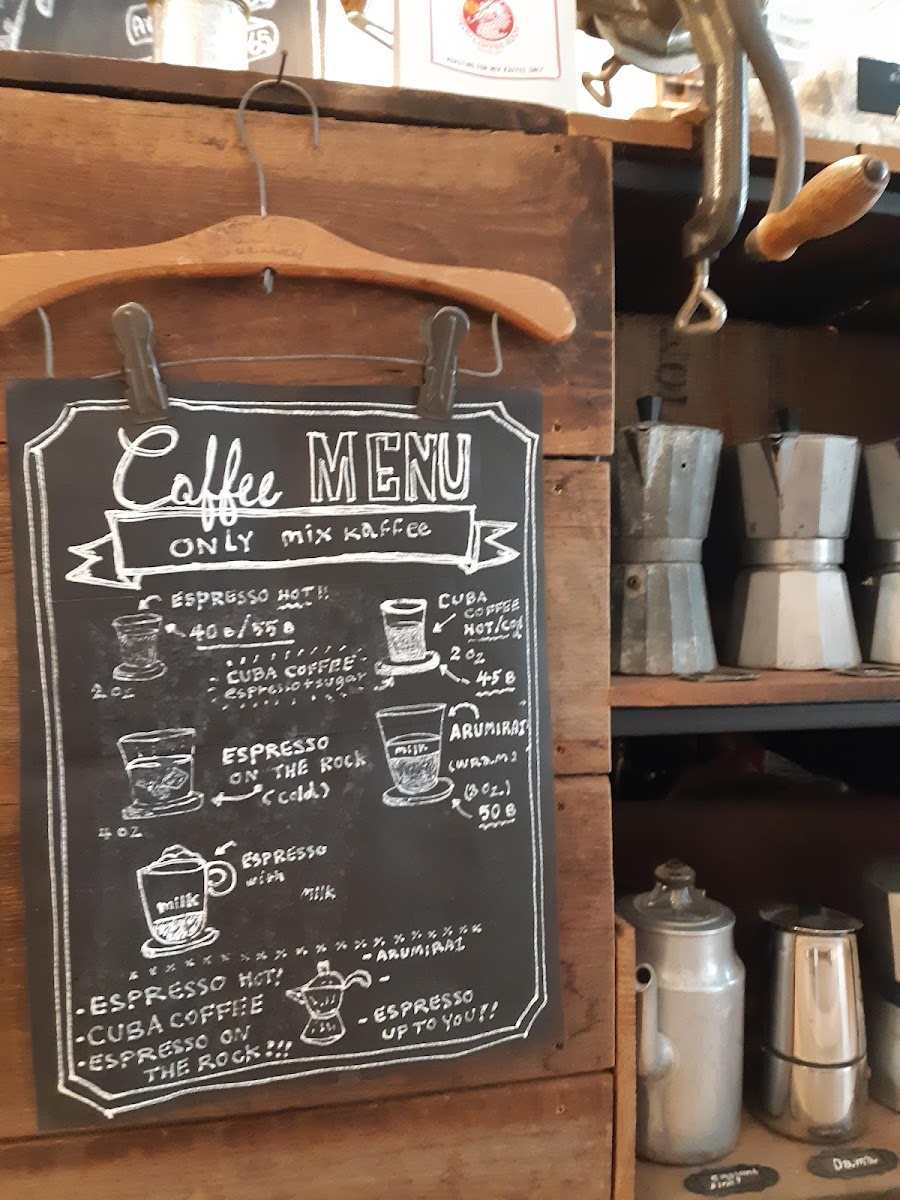 ROASTING FOR MIX KAFFEE ONLY
65
Coffee MENU
ONLY mix kaffee
ESPRESSO HOT!!
40฿/55฿
2 oz
CUBA
COFFEE
HOT/Cold
2 oz
45฿
- CUBA COFFEE -
espresso + sugar
ESPRESSO
ON THE ROCK
(cold)
4 oz
ARUMIRAI
milk
(3 oz.)
50฿
ESPRESSO
with
milk
milk
- ESPRESSO HOT!
- CUBA COFFEE
- ESPRESSO ON
THE ROCK!!!
- ARUMIRAI
-
- ESPRESSO
UP TO YOU!!